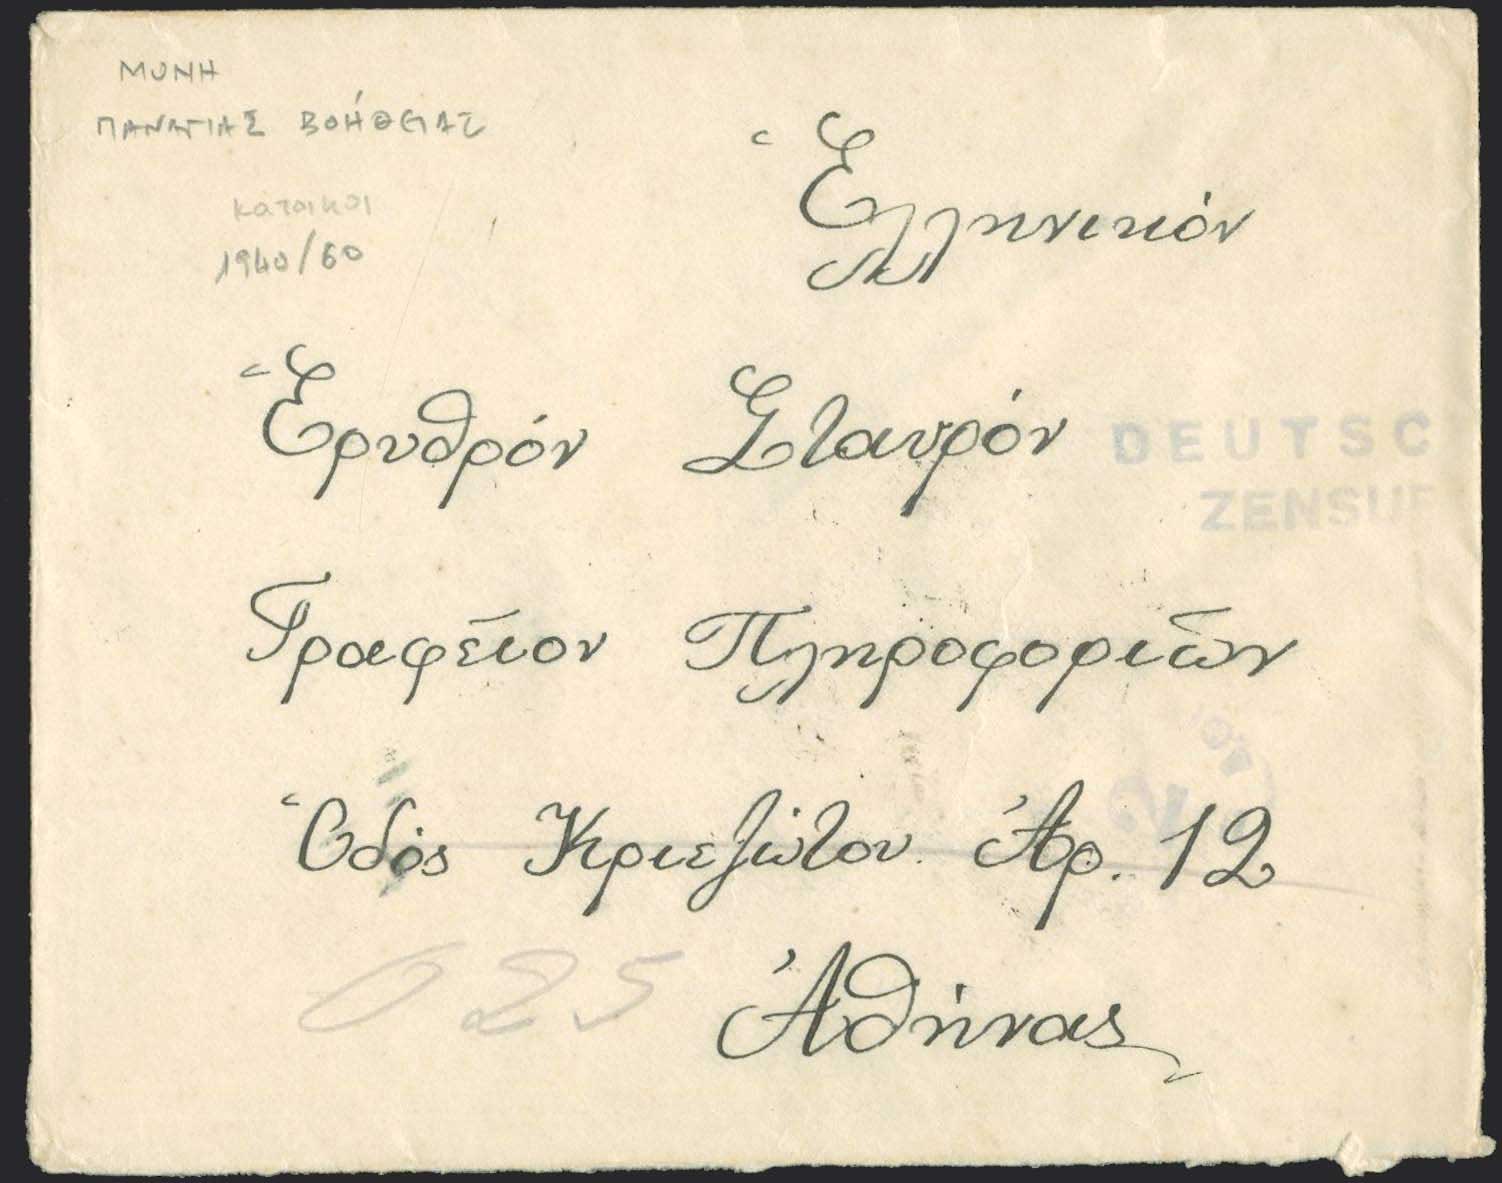 ΜΟΝΗ
ΠΑΝΑΓΙΑΣ ΒΟΉΘΕΙΑΣ
κατοικοι
1940/60
Ἑλληνικόν
Ἐρυθρόν Σταυρόν
DEUTSC
ZENSUR
Γραφεῖον Πληροφοριῶν
Ὁδός Κριεζώτου Ἀρ. 12
025
Ἀθήνας